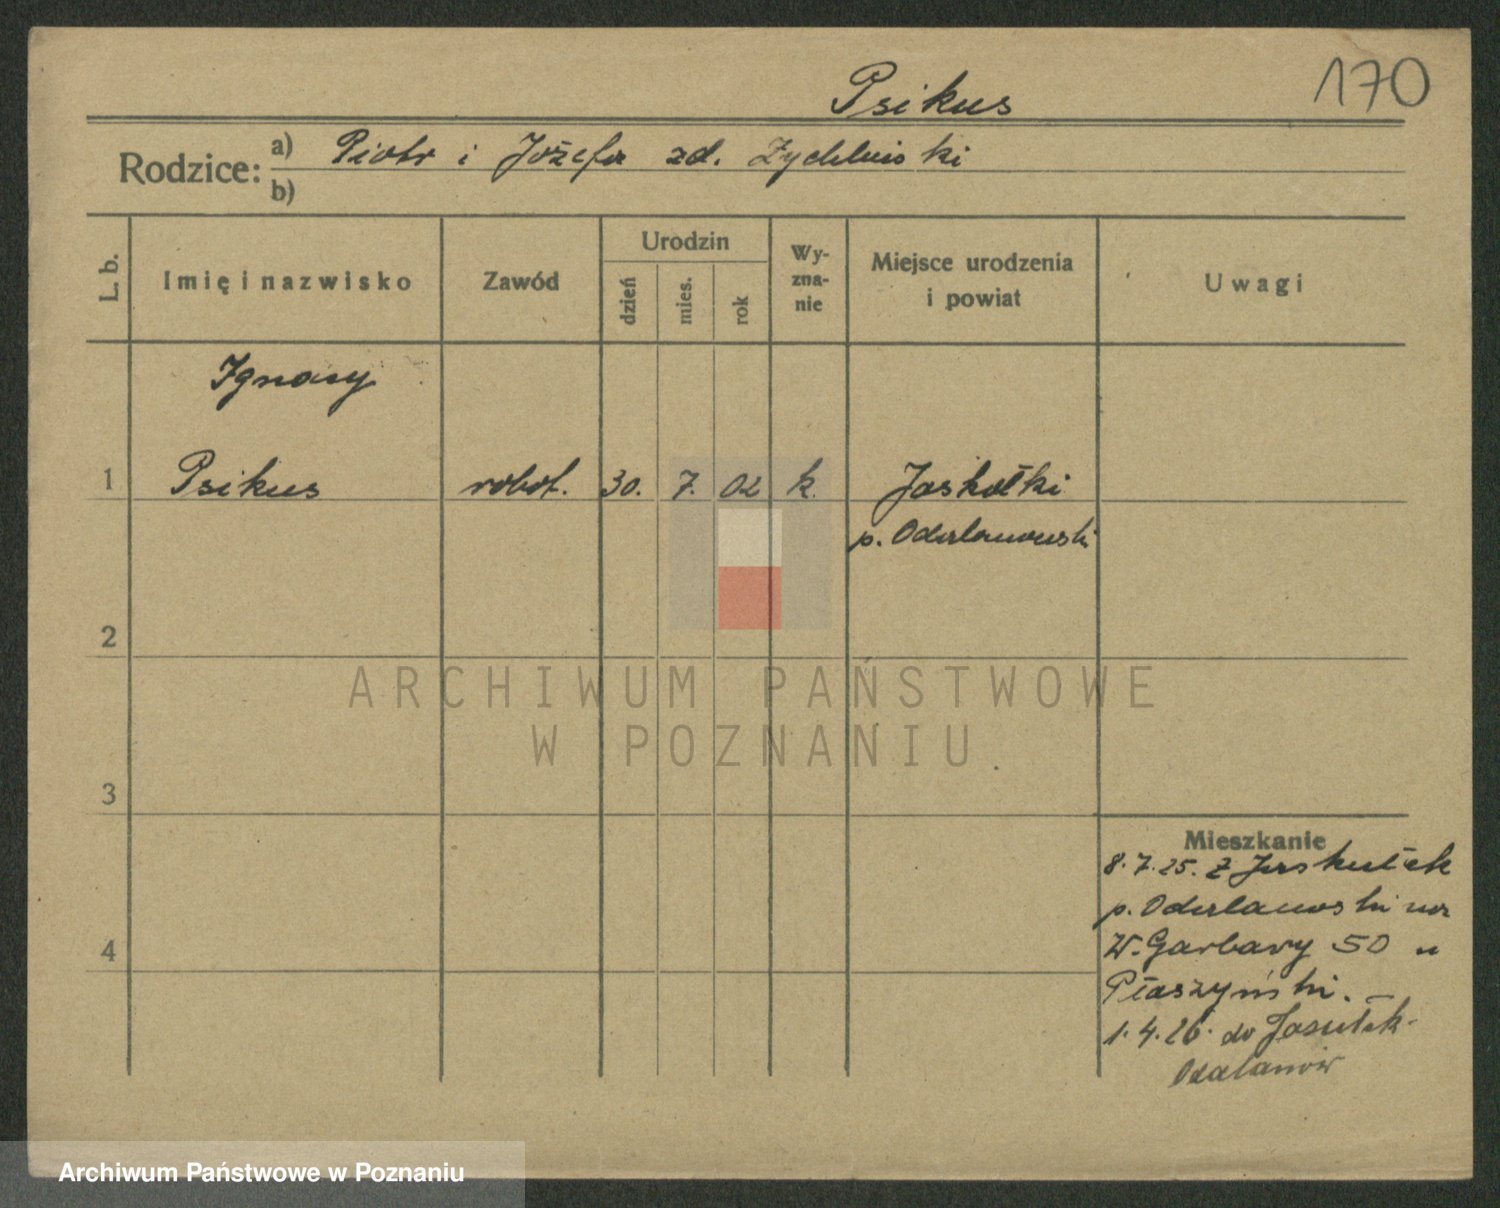 Psikus
170
Rodzice: a) Piotr i Józefa zd. Zychlinski
b)
L. b.
Imię i nazwisko
Zawód
Urodzin
dzień
mies.
rok
Wy-
zna-
nie
Miejsce urodzenia
i powiat
Uwagi
Ignacy
1 Psikus robot. 30. 7. 02 k. Jaskółki
p. Odolanowski
2
ARCHIWUM PAŃSTWOWE
W POZNANIU
3
Mieszkanie
8.7.25. z
p. Odolanowski na
4 W. Garbary 50 u
Płaszyński.
1.4.26. do
Odolanów
Archiwum Państwowe w Poznaniu